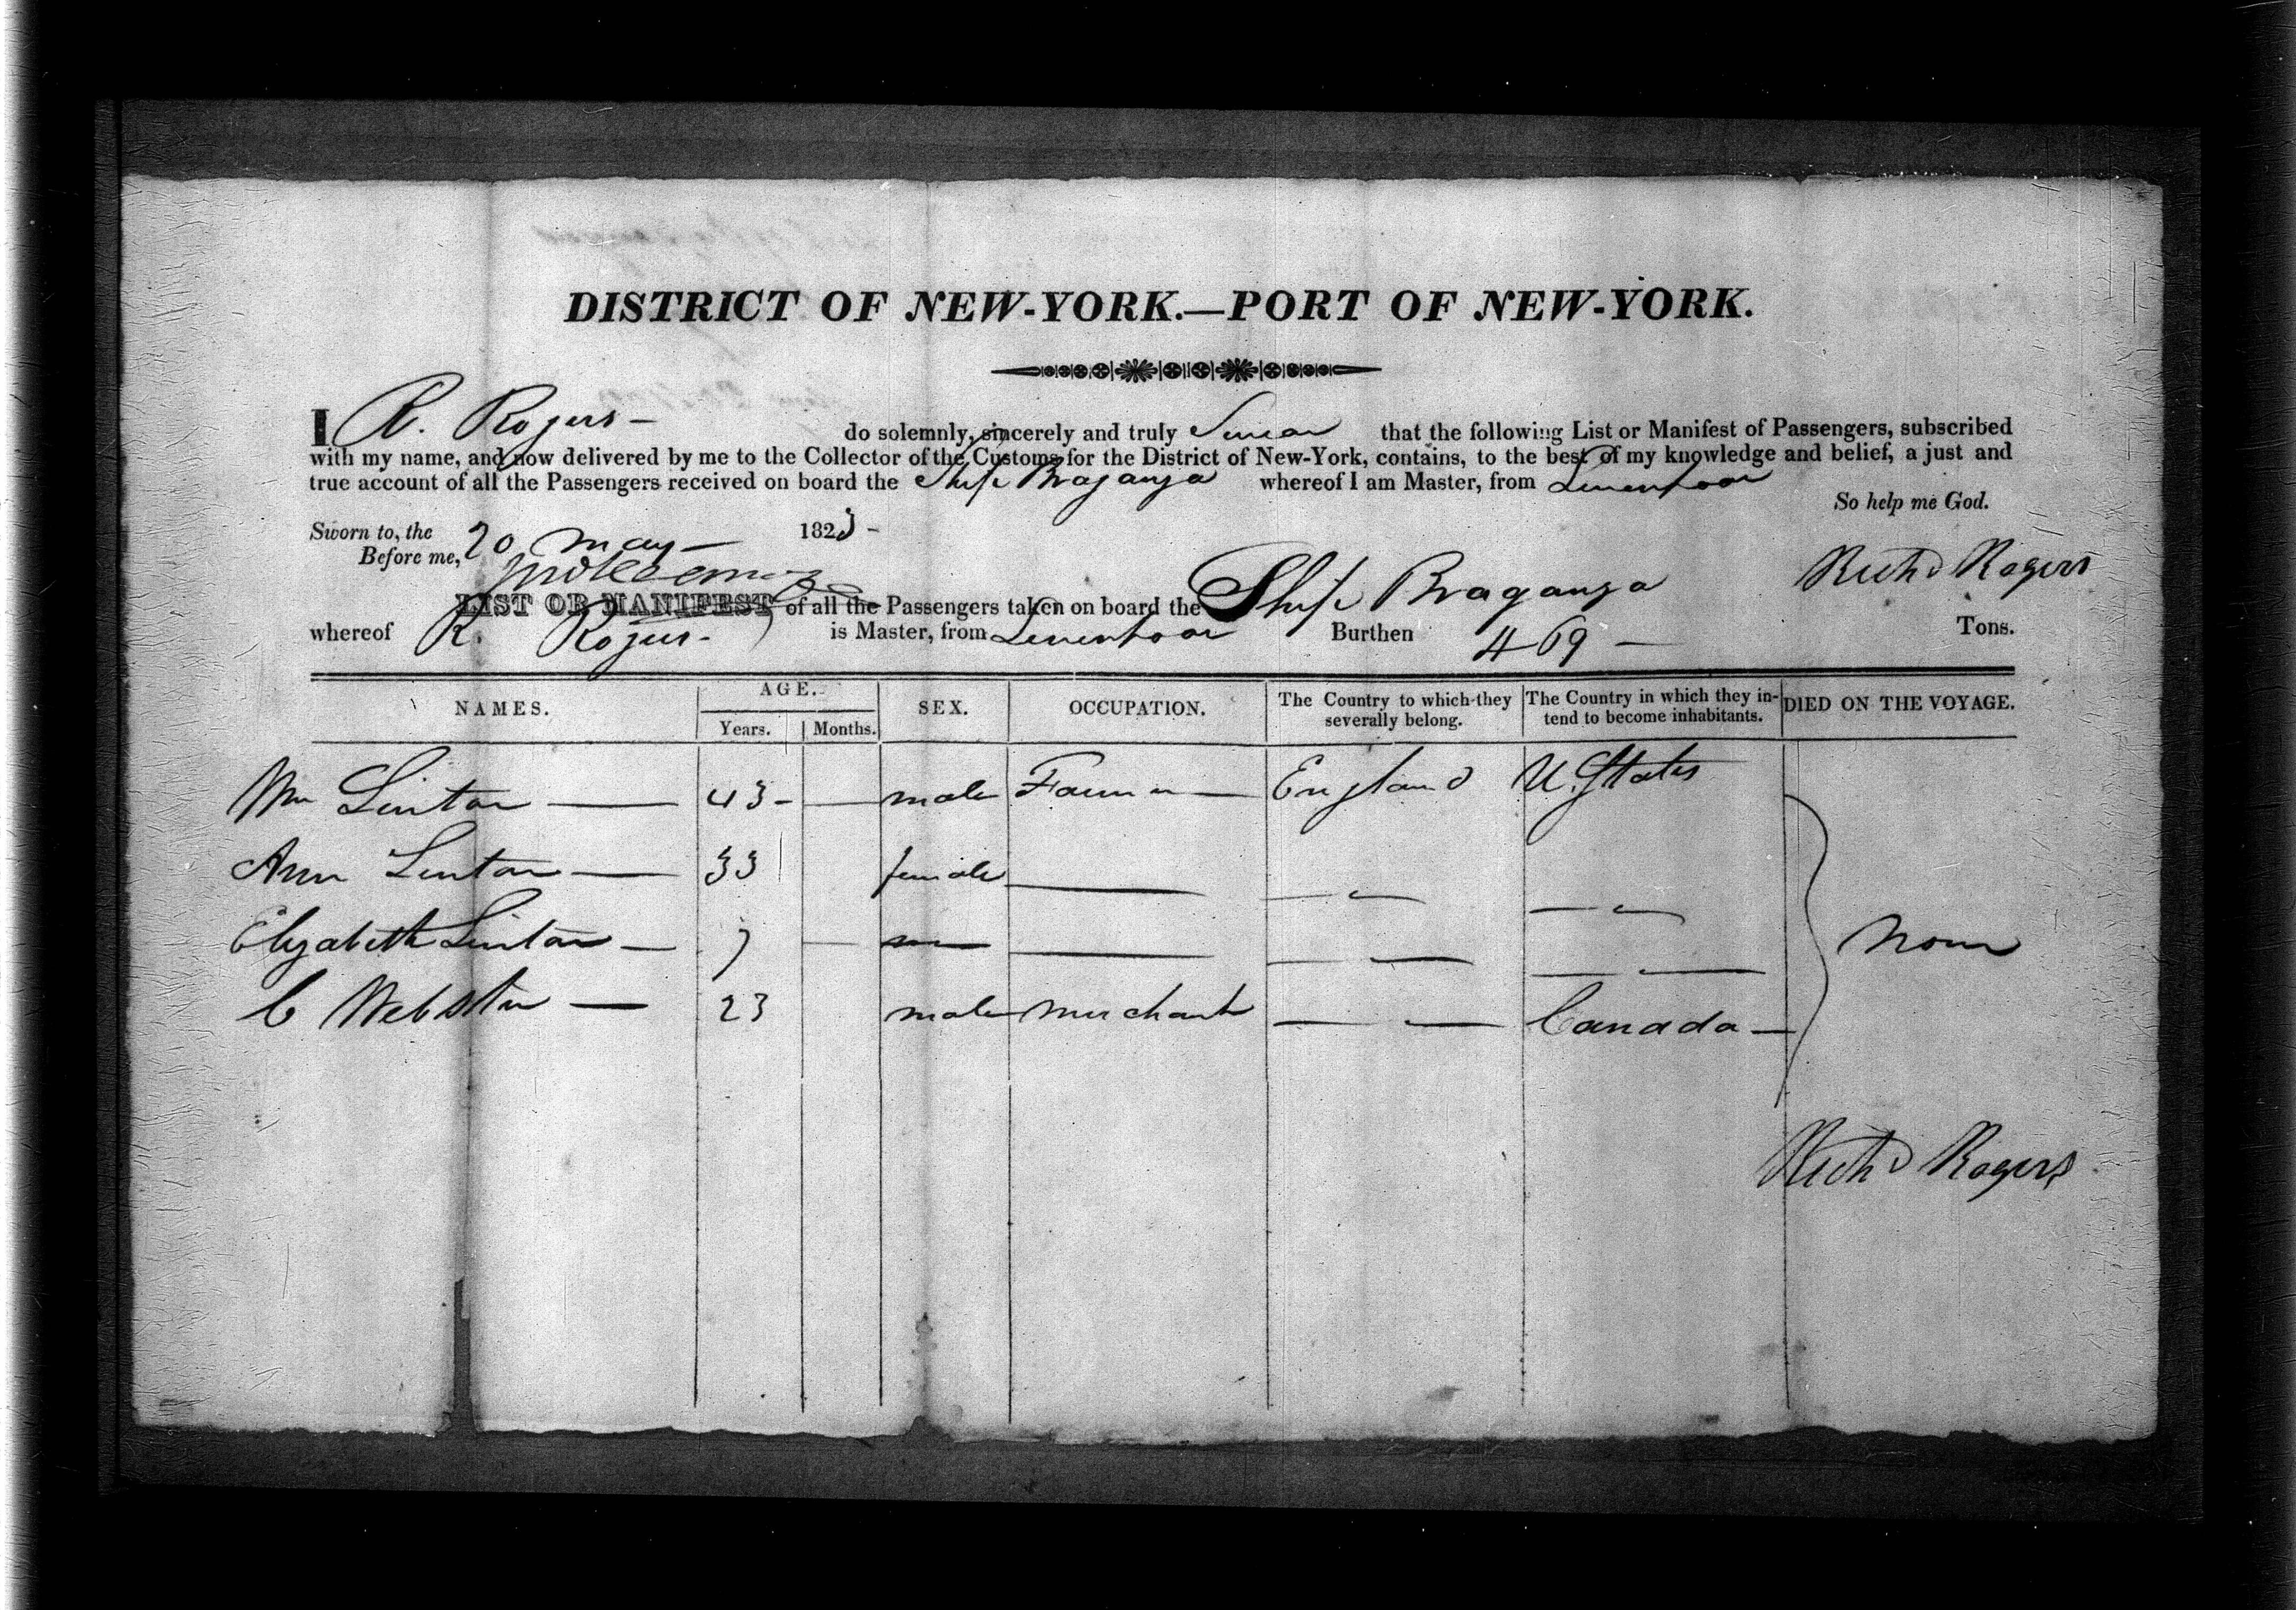 DISTRICT OF NEW-YORK.—PORT OF NEW-YORK.
I R. Rogers — do solemnly, sincerely and truly Swear that the following List or Manifest of Passengers, subscribed
with my name, and now delivered by me to the Collector of the Customs for the District of New-York, contains, to the best of my knowledge and belief, a just and
true account of all the Passengers received on board the Ship Braganza whereof I am Master, from Liverpool
So help me God.
Sworn to, the 20 May — 1823 —
Before me,
Richd Rogers
LIST OR MANIFEST of all the Passengers taken on board the Ship Braganza
whereof R. Rogers — is Master, from Liverpool Burthen 469 — Tons.
NAMES. AGE. SEX. OCCUPATION. The Country to which they severally belong. The Country in which they intend to become inhabitants. DIED ON THE VOYAGE.
Years. Months.
Wm Linton — 43 — — male Farmer — England U. States
Ann Linton — 33 female — — " — — " —
Elizabeth Linton — 7 — — — — — — —
None
C Webster — 23 male Merchant — — Canada —
Richd Rogers